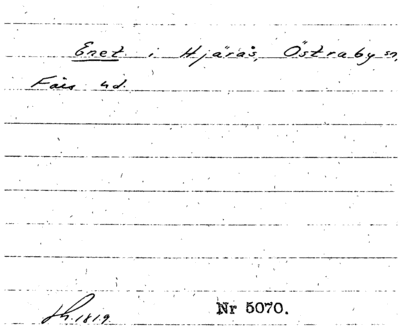 Enet i Hjärås, Östraby sn,
Färs hd.
Sk. 1819. Nr 5070.